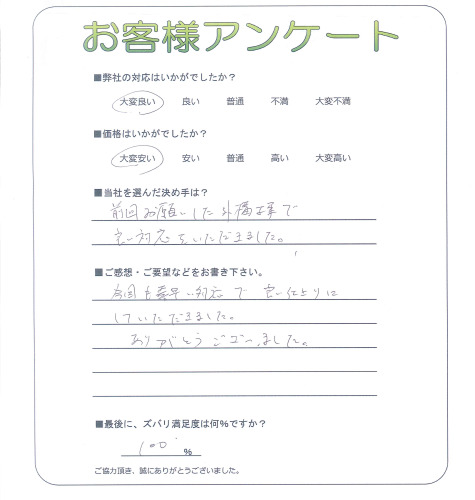 お客様アンケート
■弊社の対応はいかがでしたか?
大変良い 良い 普通 不満 大変不満
■価格はいかがでしたか?
大変安い 安い 普通 高い 大変高い
■当社を選んだ決め手は?
前回お願いした外構工事で
良い対応をいただきました。
■ご感想・ご要望などをお書き下さい。
今回も素早い対応で良い仕上りに
していただきました。
ありがとうございました。
■最後に、ズバリ満足度は何%ですか?
100 %
ご協力頂き、誠にありがとうございました。